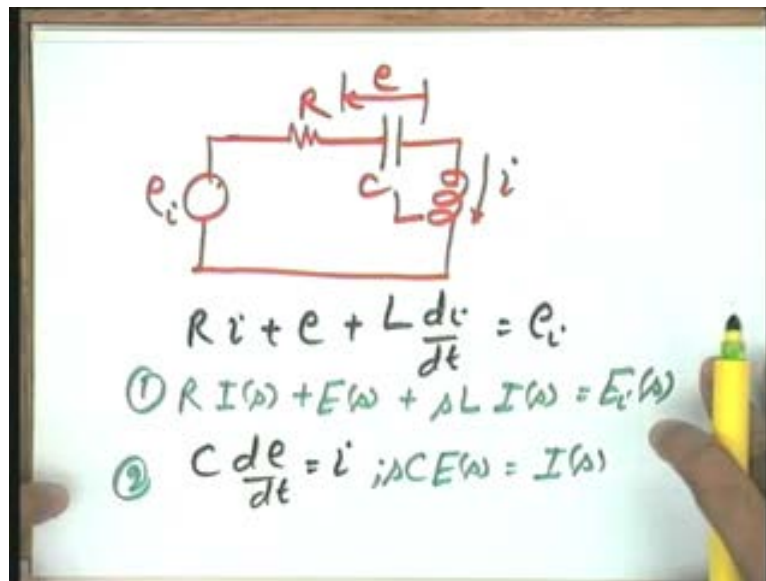 e
R
e_i
C
L
i
R i + e + L di/dt = e_i
① R I(s) + E(s) + sL I(s) = E_i(s)
② C de/dt = i ; sCE(s) = I(s)